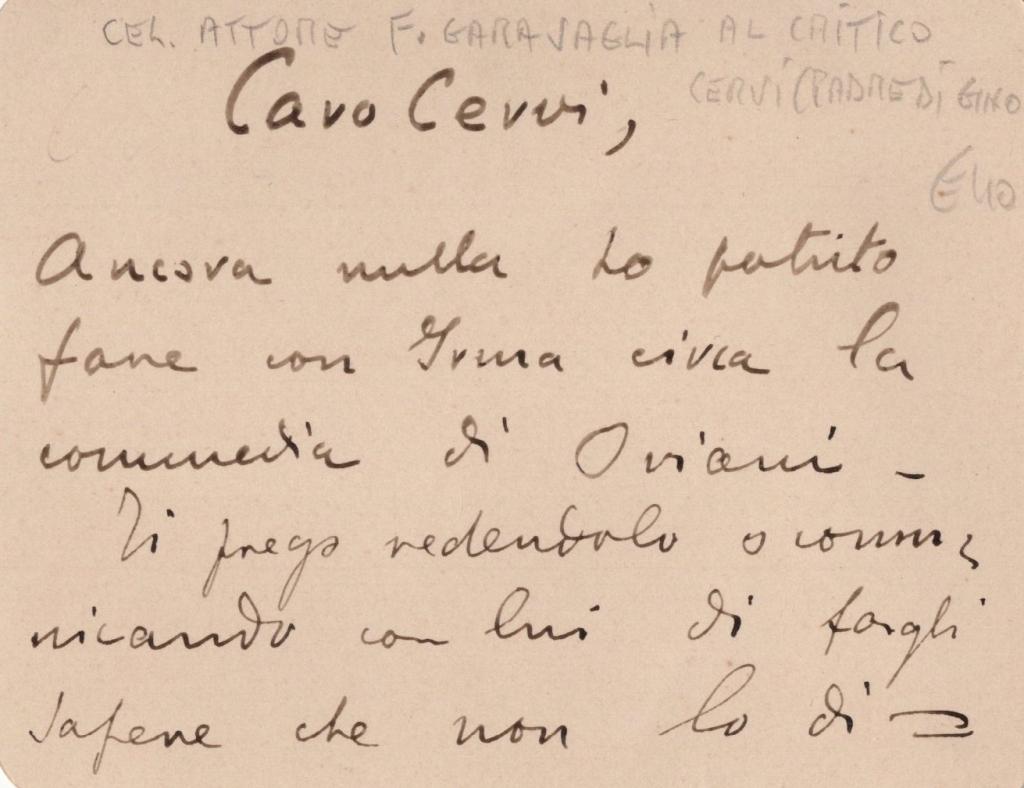 CEL. ATTORE F. GARAVAGLIA AL CRITICO
CERVI (PADRE DI GINO
Caro Cervi,
Ancora nulla ho potuto
fare con Irma circa la
commedia di Oriani -
Ti prego vedendolo o comu
nicando con lui di fargli
sapere che non lo di =